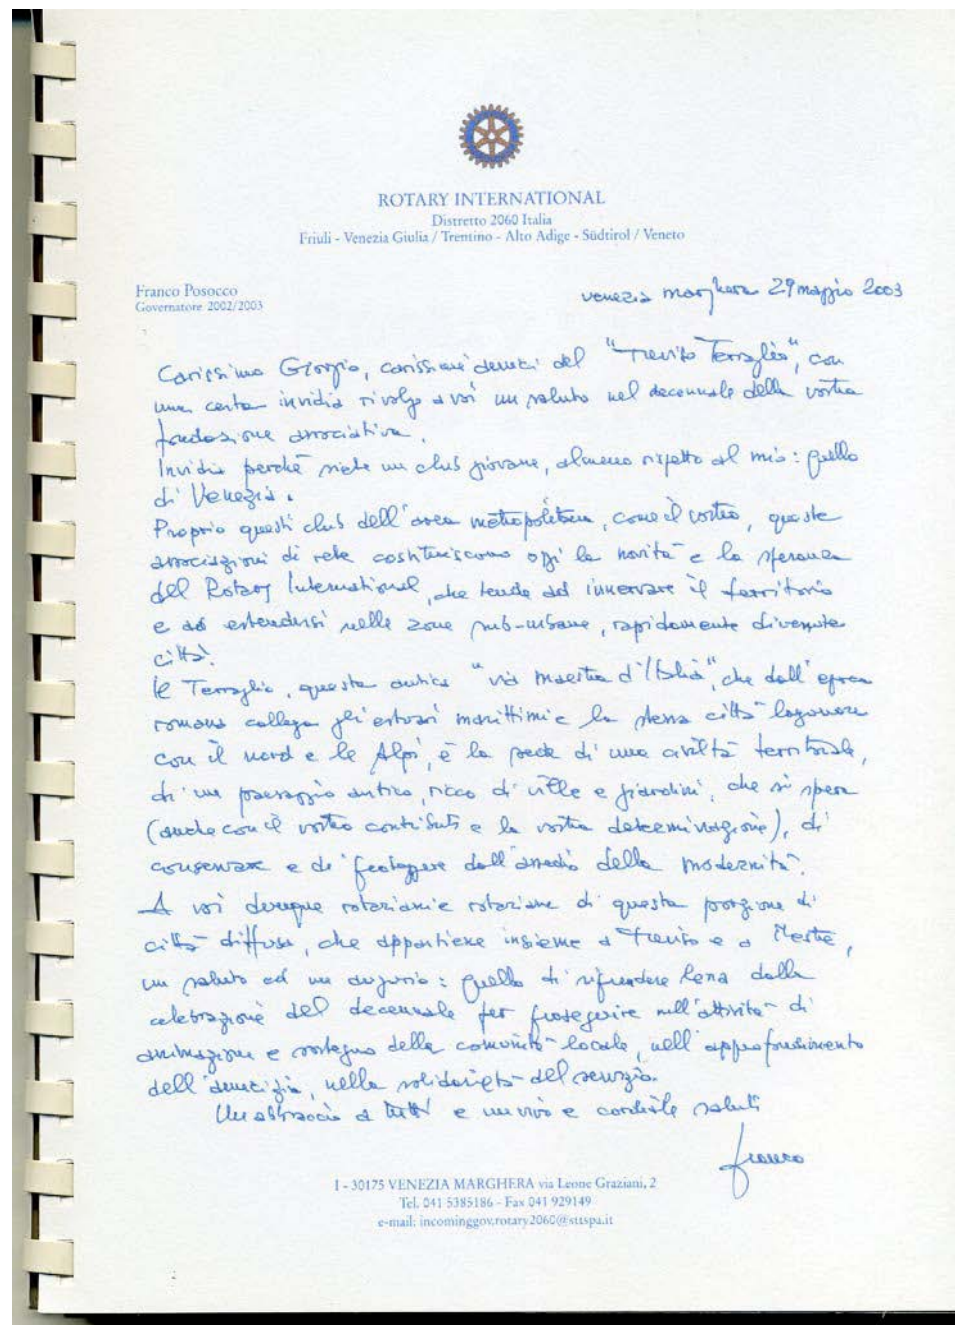 ROTARY INTERNATIONAL
Distretto 2060 Italia
Friuli - Venezia Giulia / Trentino - Alto Adige - Südtirol / Veneto
Franco Posocco
Governatore 2002/2003
venezia marghera 29 maggio 2003
Carissimo Giorgio, carissimi amici del "Treviso Terraglio", con
una certa invidia rivolgo a voi un saluto nel decennale della vostra
fondazione associativa.
Invidia perché siete un club giovane, almeno rispetto al mio: quello
di Venezia.
Proprio questi club dell'area metropolitana, come il vostro, queste
associazioni di rete costituiscono oggi la novità e la speranza
del Rotary International, che tende ad innervare il territorio
e ad estendersi nelle zone sub-urbane, rapidamente divenute
città.
Il Terraglio, questa antica "via maestra d'Italia", che dall'epoca
romana collega gli estuari marittimi e la stessa città lagunare
con il nord e le Alpi, è la sede di una civiltà territoriale,
di un paesaggio antico, ricco di ville e giardini, che si spera
(anche con il vostro contributo e la vostra determinazione), di
conservare e di proteggere dall'assedio della modernità.
A voi dunque rotariani e rotariane di questa porzione di
città diffusa, che appartiene insieme a Treviso e a Mestre,
un saluto ed un augurio: quello di riprendere lena dalla
celebrazione del decennale per proseguire nell'attività di
animazione e sostegno della comunità locale, nell'approfondimento
dell'amicizia, nella solidarietà del servizio.
Un abbraccio a tutti e un vivo e cordiale saluti
franco
I - 30175 VENEZIA MARGHERA via Leone Graziani, 2
Tel. 041 5385186 - Fax 041 929149
e-mail: incominggov.rotary2060@sttspa.it